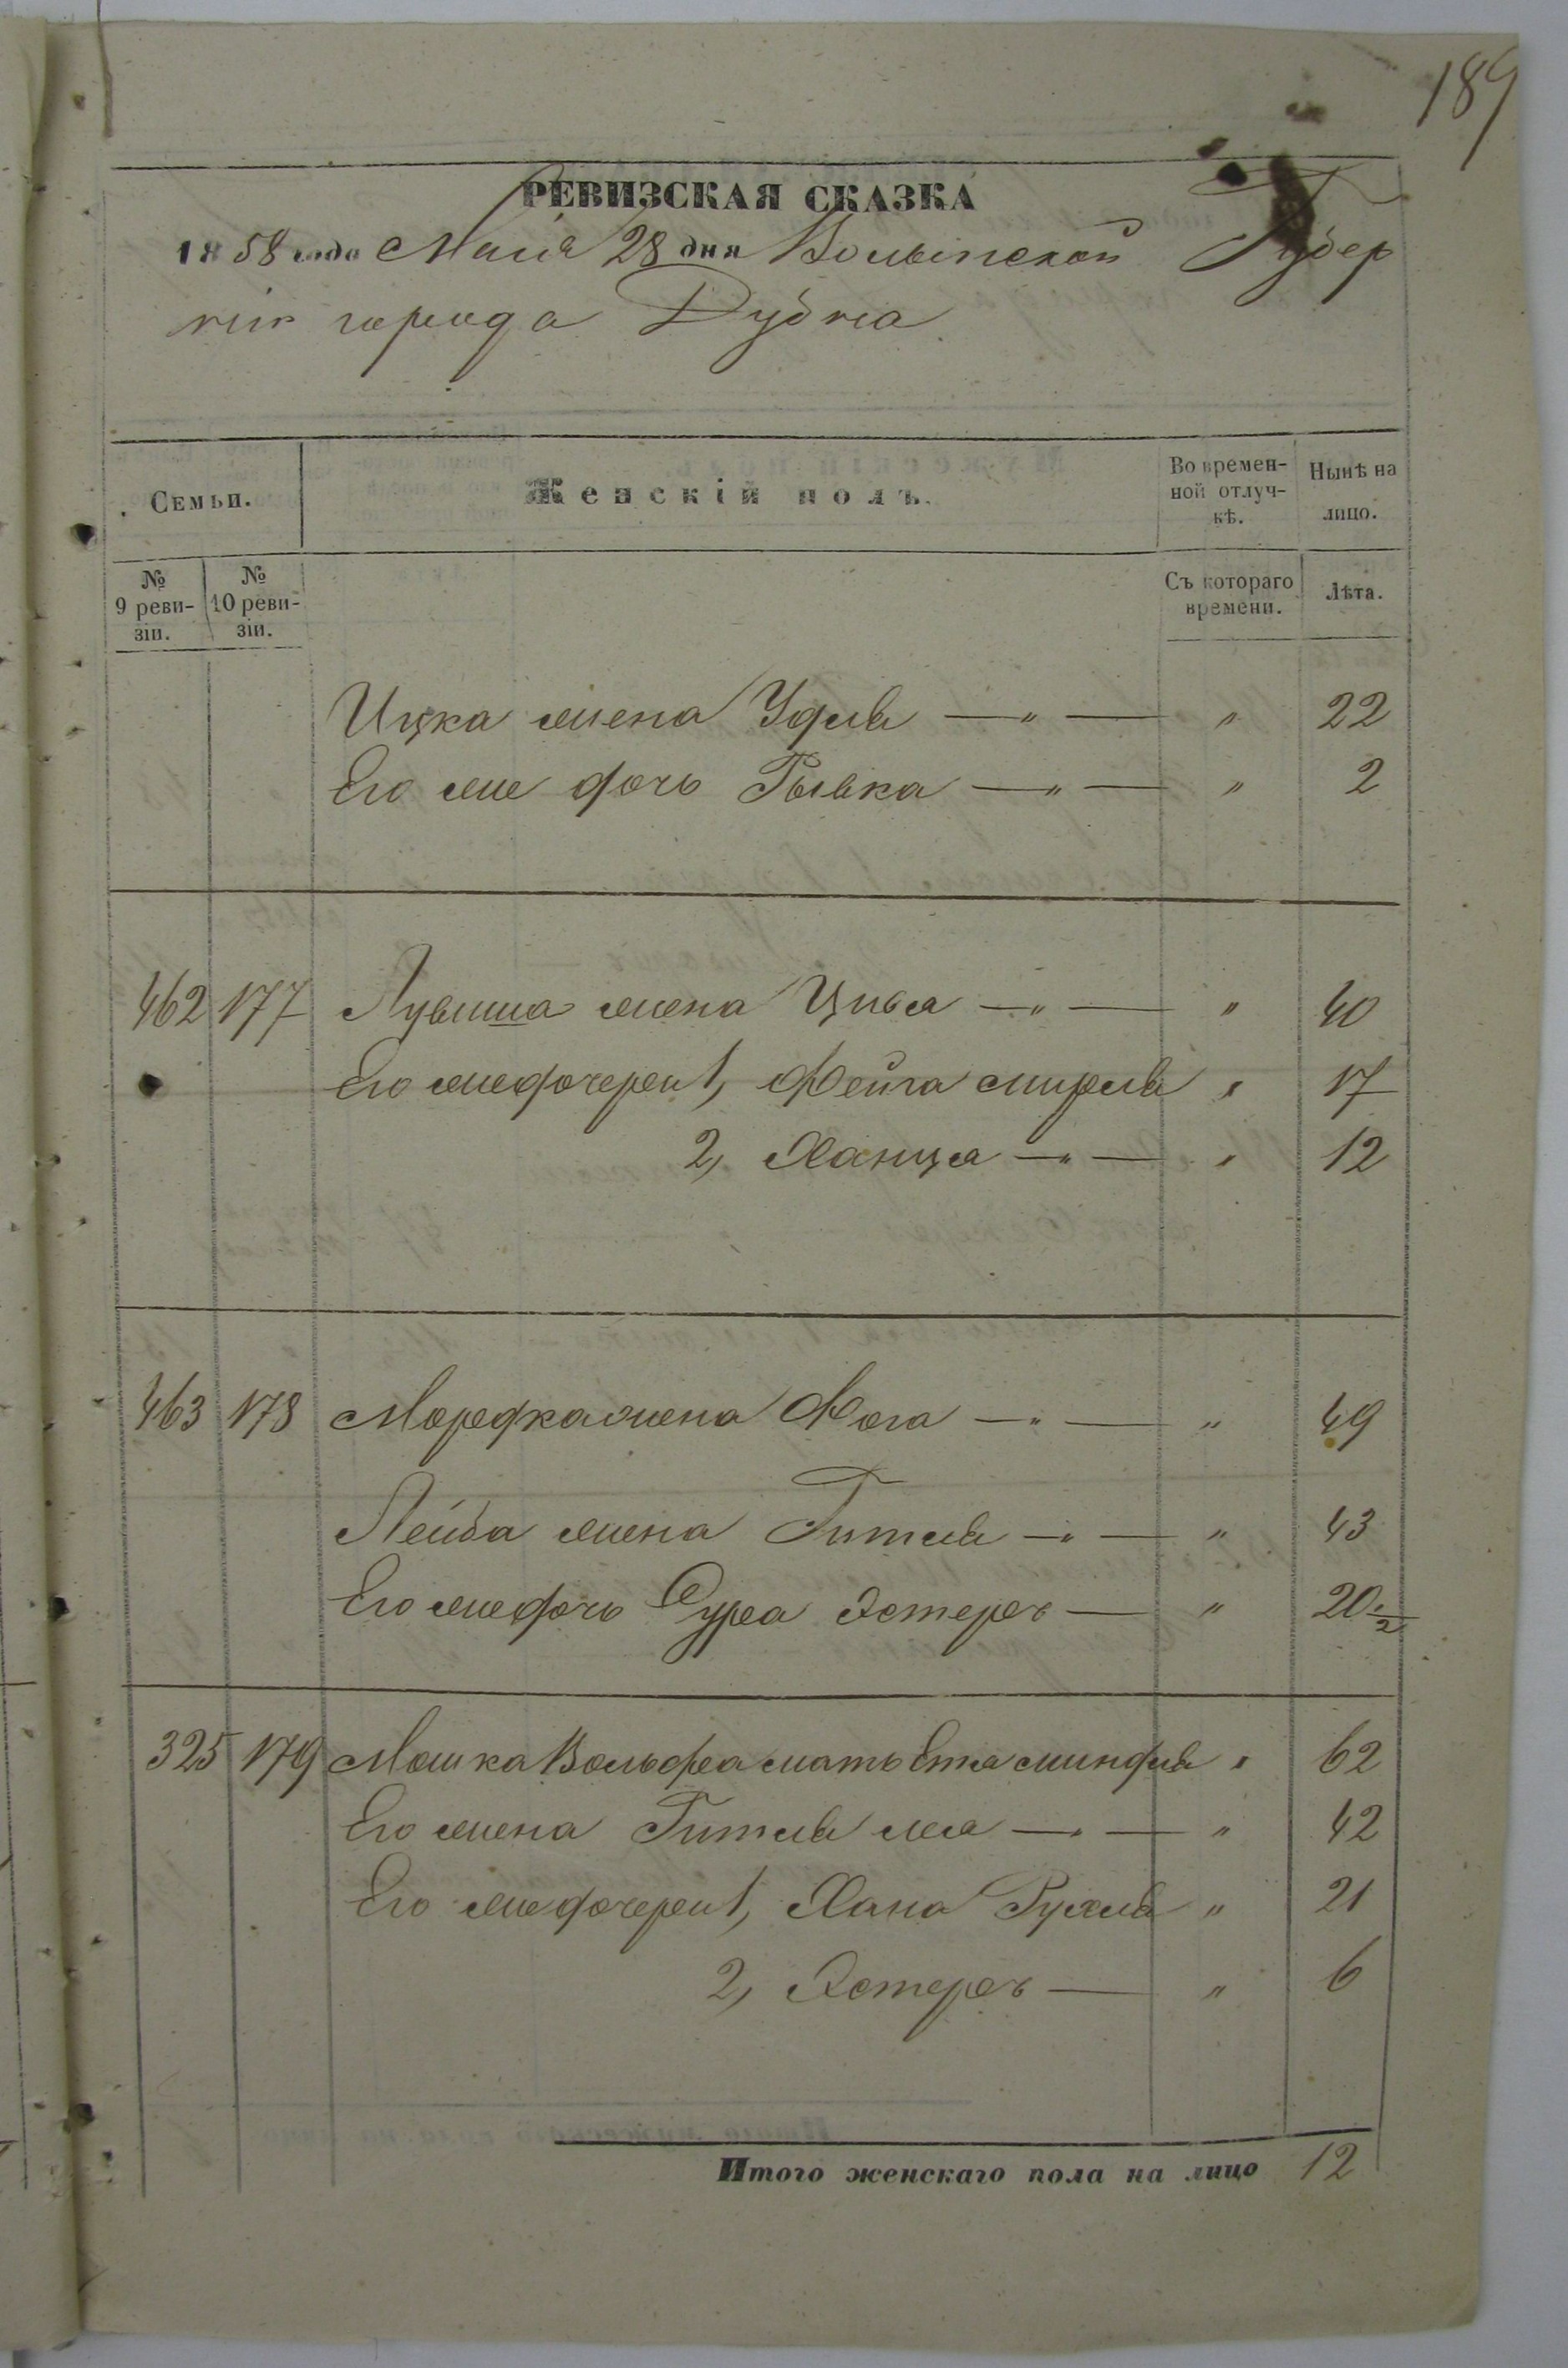 189
РЕВИЗСКАЯ СКАЗКА
1858 года Маія 28 дня Волынской Губер
ніи города Дубна
Семьи.
Женскій полъ.
Во времен-
ной отлуч-
кѣ.
Нынѣ на
лицо.
№
9 реви-
зіи.
№
10 реви-
зіи.
Съ котораго
времени.
Лѣта.
Ицка жена Удля — " — " 22
Его же дочь Рывка — " — " 2
462 177 жена Цивя — " — " 40
Его же дочери 1, Фейга Мирля " 17
2, Ханця — " — " 12
463 178 Мордка жена Фога — " — " 49
Лейба жена Гитля — " — " 43
Его же дочь Сура Эстеръ — " 20 1/2
325 179 Мошка Вольфа мать Етя Миндля " 62
Его жена Гитля Лея — " — " 42
Его же дочери 1, Хана Рухля " 21
2, Эстеръ — " 6
Итого женскаго пола на лицо 12